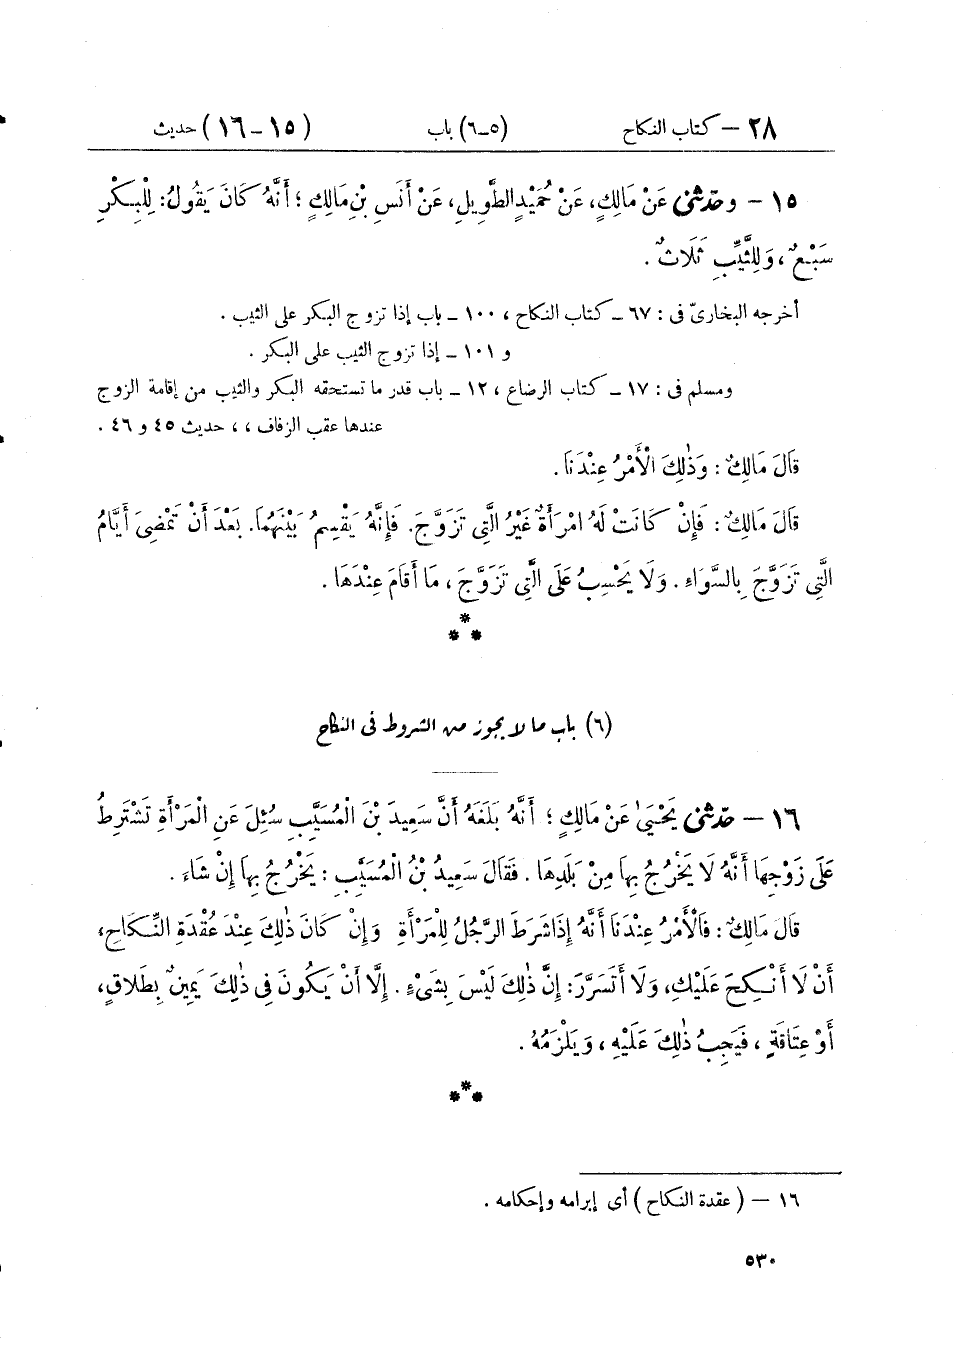 ٢٨ – كتاب النكاح (٥-٦) باب (١٥-١٦) حديث
١٥ – وحَدّثنى عَنْ مَالِكٍ، عَنْ حُمَيْدٍ الطَّوِيلِ، عَنْ أَنَسِ بْنِ مَالِكٍ؛ أَنَّهُ كَانَ يَقُولُ: لِلْبِكْرِ
سَبْعٌ، وَلِلثَّيِّبِ ثَلَاثٌ.
أخرجه البخارىّ فى : ٦٧ ـ كتاب النكاح ، ١٠٠ ـ باب إذا تزوج البكر على الثيب .
و ١٠١ ـ إذا تزوج الثيب على البكر .
ومسلم فى : ١٧ ـ كتاب الرضاع ، ١٢ ـ باب قدر ما تستحقه البكر والثيب من إقامة الزوج
عندها عقب الزفاف ، ، حديث ٤٥ و ٤٦ .
قَالَ مَالِكٌ : وَذٰلِكَ الْأَمْرُ عِنْدَنَا.
قَالَ مَالِكٌ : فَإِنْ كَانَتْ لَهُ امْرَأَةٌ غَيْرُ الَّتِى تَزَوَّجَ. فَإِنَّهُ يَقْسِمُ بَيْنَهُمَا. بَعْدَ أَنْ تَمْضِىَ أَيَّامُ
الَّتِى تَزَوَّجَ بِالسَّوَاءِ . وَلَا يَحْسِبُ عَلَى الَّتِى تَزَوَّجَ ، مَا أَقَامَ عِنْدَهَا .
*
* *
(٦) باب ما لا يجوز من الشروط فى النكاح
١٦ – حَدّثنى يَحْيَىٰ عَنْ مَالِكٍ ؛ أَنَّهُ بَلَغَهُ أَنَّ سَعِيدَ بْنَ الْمُسَيَّبِ سُئِلَ عَنِ الْمَرْأَةِ تَشْتَرِطُ
عَلَى زَوْجِهَا أَنَّهُ لَا يَخْرُجُ بِهَا مِنْ بَلَدِهَا . فَقَالَ سَعِيدُ بْنُ الْمُسَيَّبِ : يَخْرُجُ بِهَا إِنْ شَاءَ .
قَالَ مَالِكٌ : فَالْأَمْرُ عِنْدَنَا أَنَّهُ إِذَا شَرَطَ الرَّجُلُ لِلْمَرْأَةِ وَإِنْ كَانَ ذٰلِكَ عِنْدَ عُقْدَةِ النِّكَاحِ،
أَنْ لَا أَنْكِحَ عَلَيْكِ، وَلَا أَتَسَرَّرَ: إِنَّ ذٰلِكَ لَيْسَ بِشَىْءٍ . إِلَّا أَنْ يَكُونَ فِى ذٰلِكَ يَمِينٌ بِطَلَاقٍ،
أَوْ عِتَاقَةٍ ، فَيَجِبُ ذٰلِكَ عَلَيْهِ ، وَيَلْزَمُهُ .
*
* *
١٦ – ( عقدة النكاح ) أى إبرامه وإحكامه .
٥٣٠